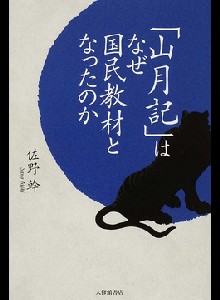 「山月記」は
なぜ
国民教材と
なったのか
佐野 幹
Sano Miki
大修館書店